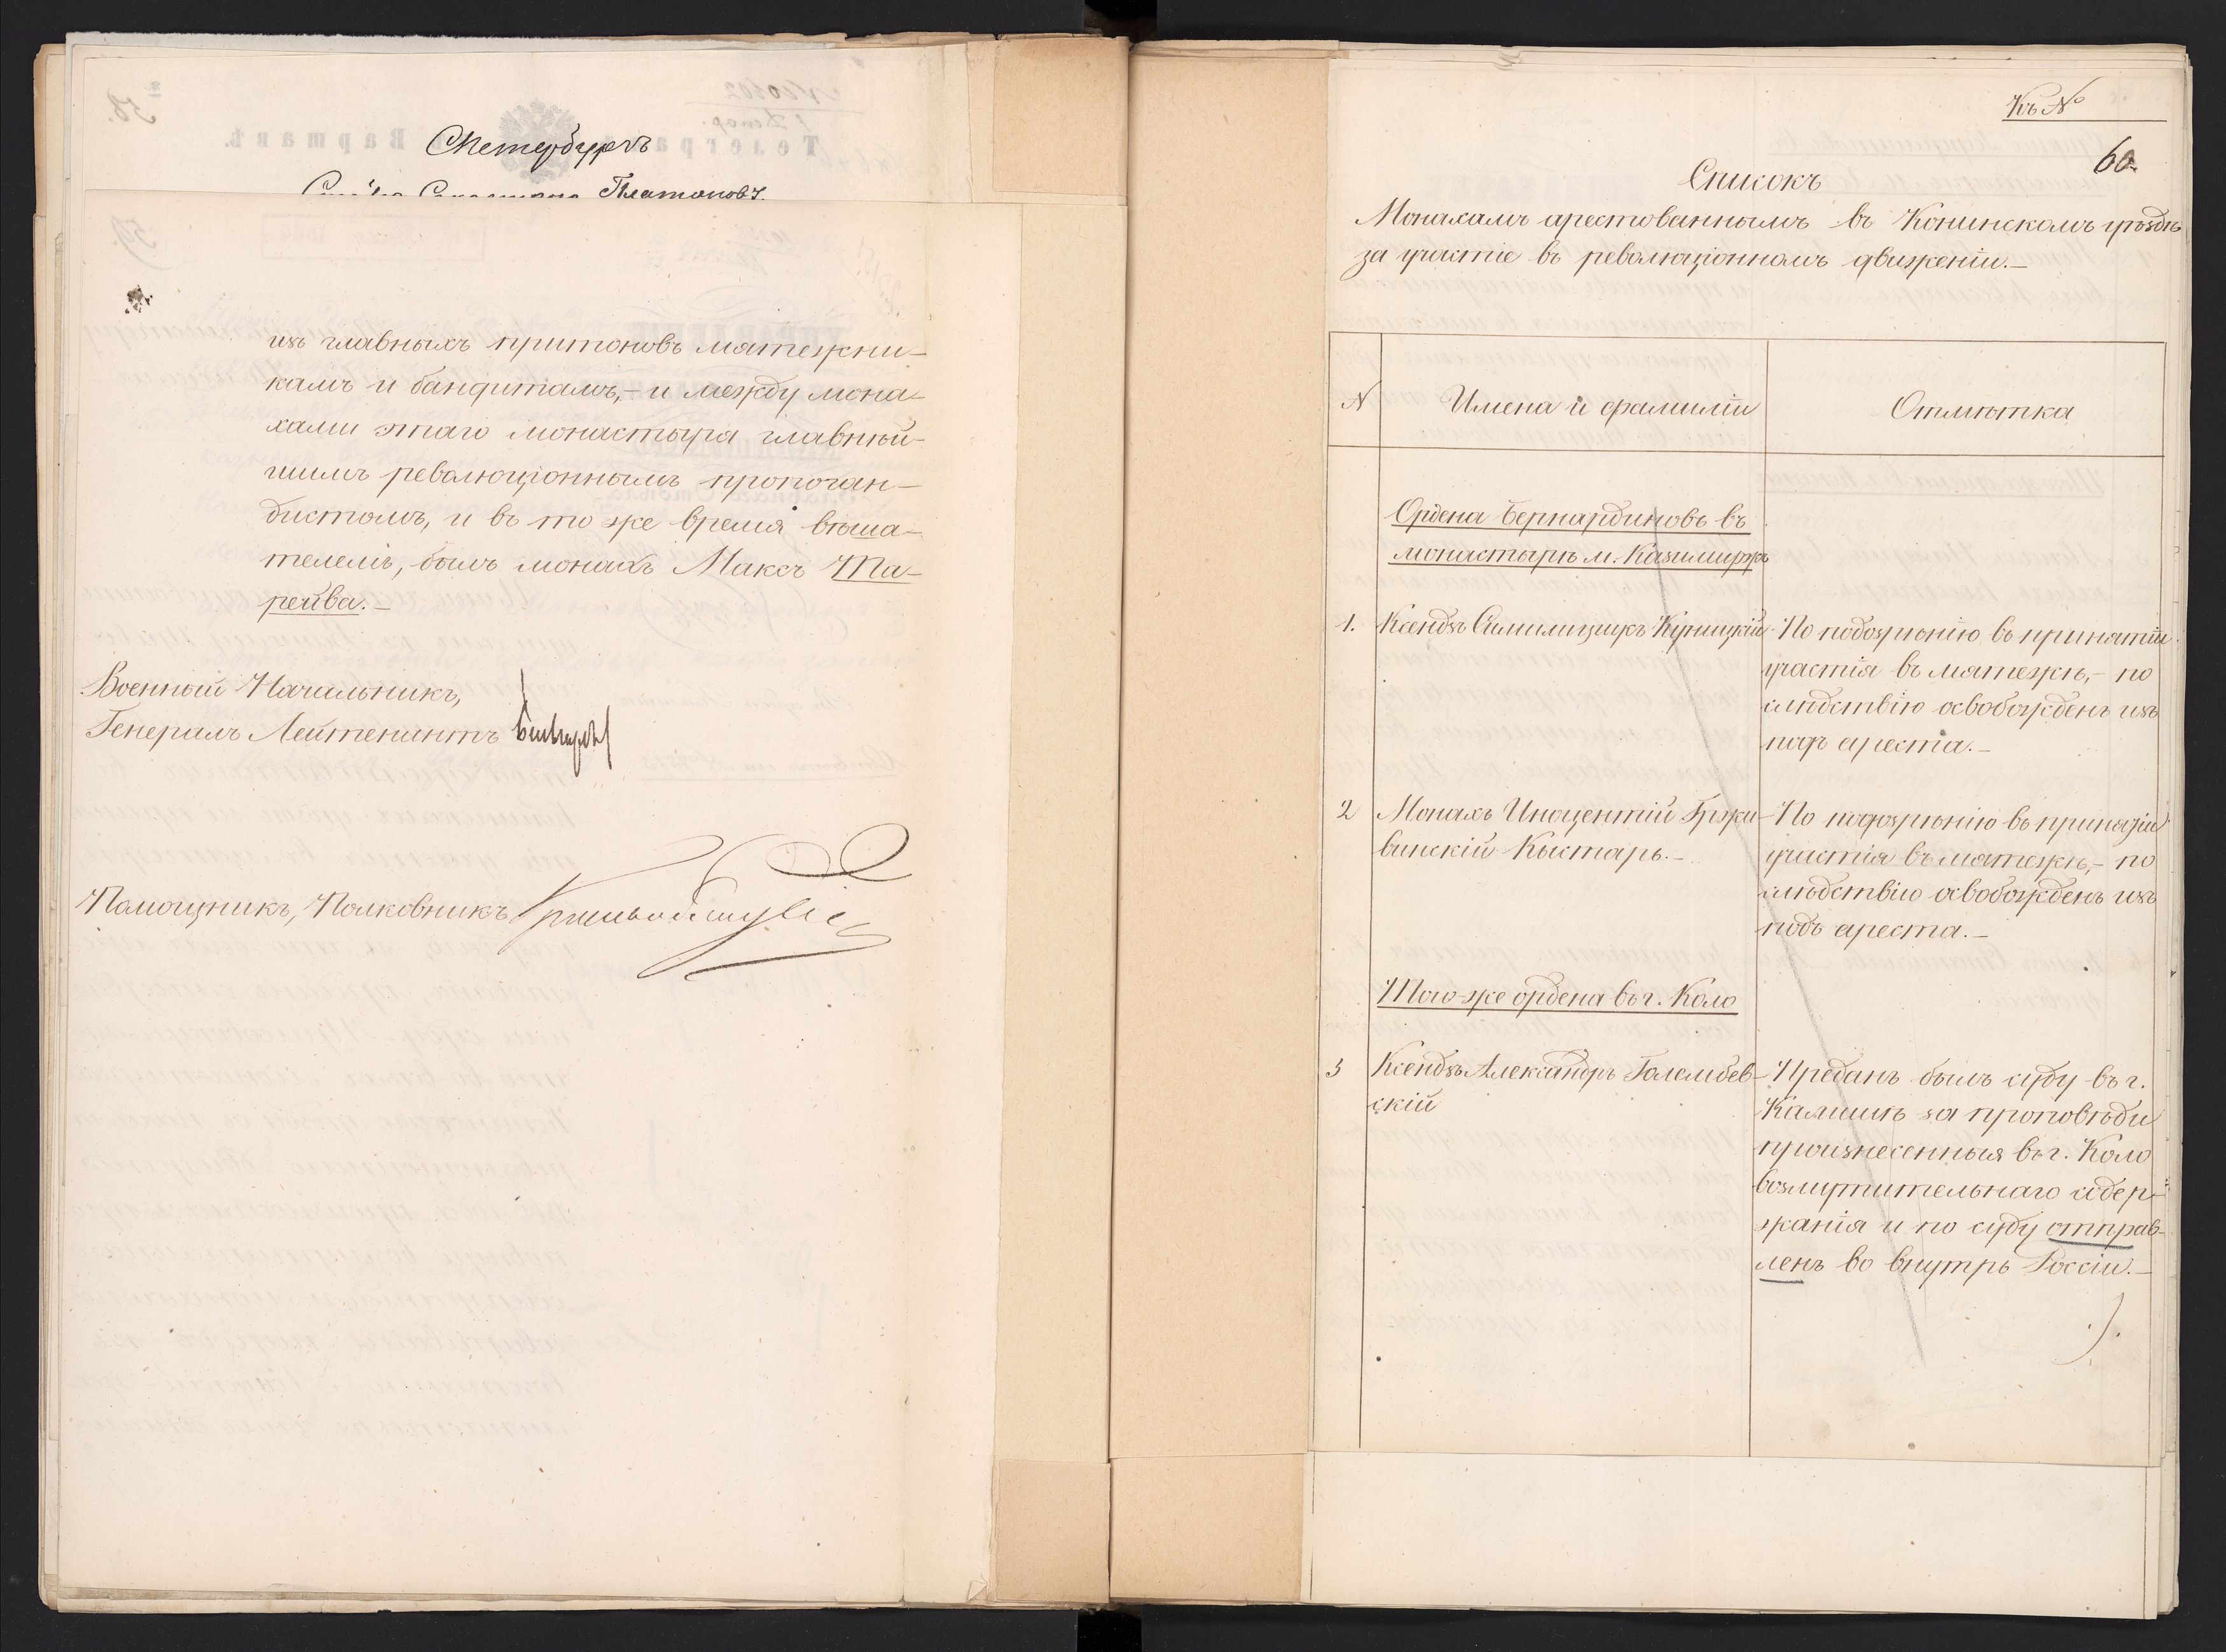 СПетербургъ
Платоновъ.
изъ главныхъ притоновъ мятежни-
камъ и бандитамъ,- и между мона-
хами этаго монастыря главнѣй-
шимъ революціоннымъ пропоган-
дистомъ, и въ то же время вѣша-
телемъ, былъ монахъ Максъ Та-
рейва.-
Военный Начальникъ,
Генералъ Лейтенантъ
Помощникъ, Полковникъ
Къ №
60.
Списокъ
Монахамъ арестованнымъ въ Конинскомъ уѣздѣ
за участіе въ революціонномъ движеніи.-
№
Имена и фамиліи
Отмѣтка
Ордена Бернардиновъ въ
монастырѣ м. Казимиржѣ
1. Ксендзъ Куницкій
По подозрѣнію въ принятіи
участія въ мятежѣ,- по
слѣдствію освобожденъ изъ
подъ ареста.-
2 Монахъ Иноцентій Гржи-
бинскій Кыстарь.-
По подозрѣнію въ принятіи
участія въ мятежѣ,- по
слѣдствію освобожденъ изъ
подъ ареста.-
Того-же ордена въ г. Коло
3 Ксендзъ Александръ Голембев-
скій
Преданъ былъ суду въ г.
Калишѣ за проповѣди
произнесенныя въ г. Коло
возмутительнаго содер-
жанія и по суду отправ-
ленъ во внутрь Россіи.-